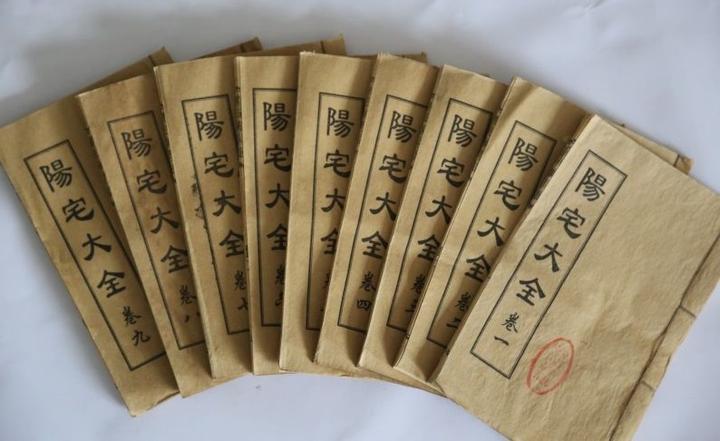 陽宅大全 卷一
陽宅大全 卷二
陽宅大全 卷三
陽宅大全 卷四
陽宅大全
陽宅大全 卷
陽宅大全 卷
陽宅大全 卷八
陽宅大全 卷九